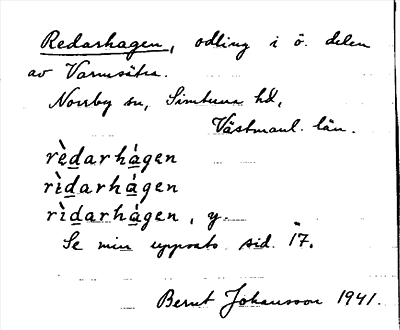 Redarhagen, odling i ö. delen
av Varmsätra.
Norrby sn, Simtuna hd,
Västmanl. län.
rèdarhágen
rìdarhágen
rìdarhágen, y.
Se min uppsats sid. 17.
Bernt Johansson 1941.